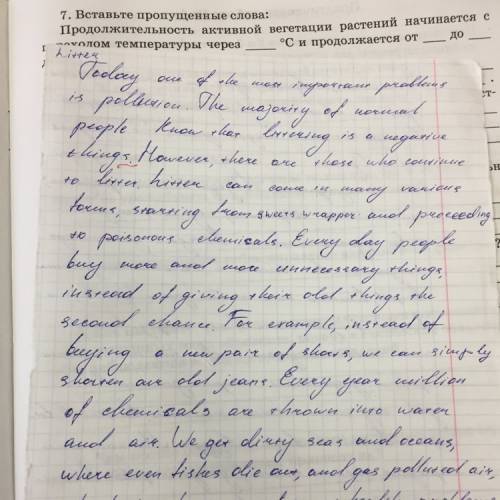 7. Вставьте пропущенные слова:
Продолжительность активной вегетации растений начинается с
еходом температуры через ____ °С и продолжается от ___ до ___
Litter
Today one of the most important problems
is pollution. The majority of normal
people know that littering is a negative
things. However, there are those who continue
to litter. Litter can come in many various
forms, starting from sweets wrapper and proceeding
to poisonous chemicals. Every day people
buy more and more unnecessary things,
instead of giving their old things the
second chance. For example, instead of
buying a new pair of shorts, we can simply
shorten our old jeans. Every year million
of chemicals are thrown into water
and air. We get dirty seas and oceans,
where even fishes die out, and gas polluted air,